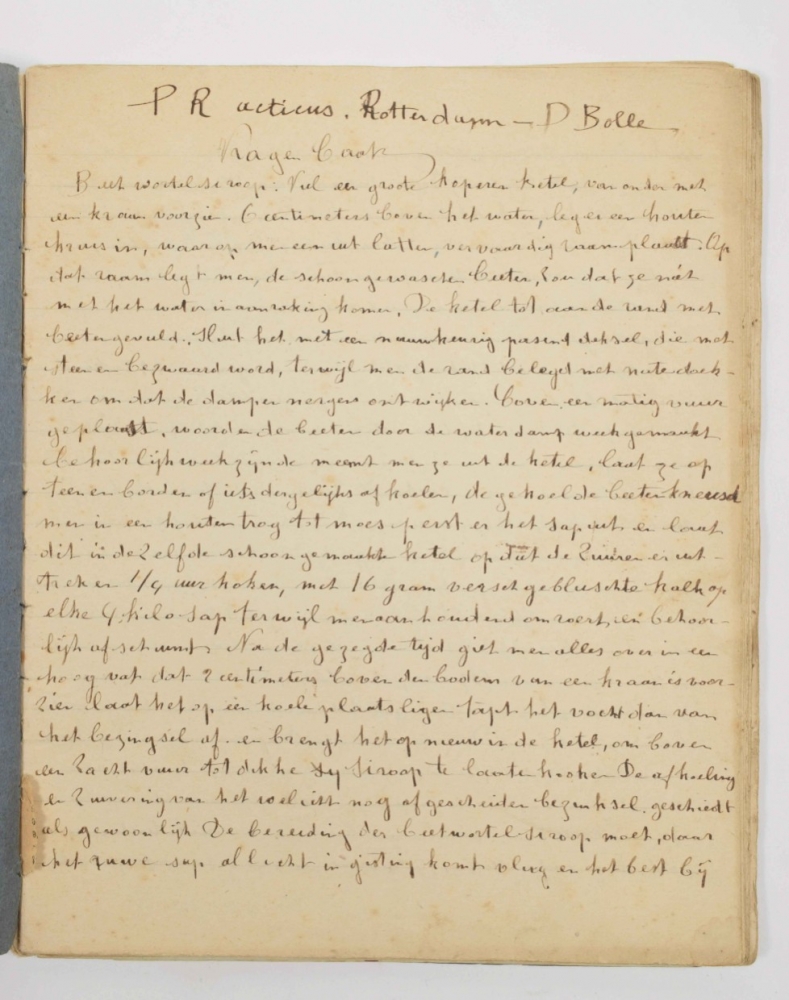 PRacticus. Rotterdam — D Bolle
Beetwortelsiroop: Vul een groote koperen ketel, van onder met
een kraan voorzie. 6 centimeters boven het water, leg er een houten
kruis in, waarop men een uit latten, vervaardig raam plaatst. Op
dat raam legt men, de schoongewaschen beeten, zoo dat ze niet
met het water in aanraking komen. De ketel tot aan de rand met
beeten gevuld. Sluit het met een nauwkeurig passend deksel, die met
steenen bezwaard word, terwijl men de rand belegd met natte doek-
ken om dat de dampen nergens ontwijken. boven een matig vuur
geplaatst, woorden de beeten door de waterdamp weekgemaakt
behoorlijk week zijnde neemt men ze uit de ketel, laat ze op
steenen borden of iets dergelijks afkoelen, de gekoelde beeten kneusd
men in een houten trog tot moes, perst er het sap uit en laat
dit in dezelfde schoongemaakte ketel op dat de zuuren er uit-
trekken 1/4 uur koken, met 16 gram versch gebluschte kalk op
elke 4 kilo sap terwijl men aanhoudend omroert, en behoor-
lijk afschuimt. Na de gezegde tijd giet men alles over in een
hoog vat dat 2 centimeters boven den bodem van een kraan is voor-
zien laat het op een koele plaats ligen tapt het vocht dan van
het bezingsel af. en brengt het op nieuw in de ketel, om boven
een zacht vuur tot dikke Siroop te laaten kooken De afkoeling
en zuivering van het wellicht nog afgescheiden bezinksel geschiedt
als gewoonlijk De bereiding der beetwortelsiroop moet, daar
het ruwe sap allicht in gisting komt vlug en het best bij